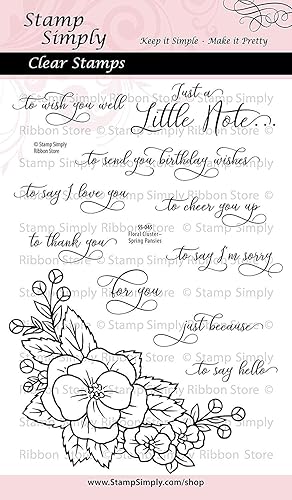 Stamp
Simply
Keep it Simple - Make it Pretty
Clear Stamps
Just a
to wish you well
Little Note...
© Stamp Simply
Ribbon Store
to send you birthday wishes
to say I love you
to cheer you up
SS-045
Floral Cluster~
Spring Pansies
to thank you
to say I'm sorry
for you
just because
to say hello
© Stamp Simply
Ribbon Store
www.StampSimply.com/shop